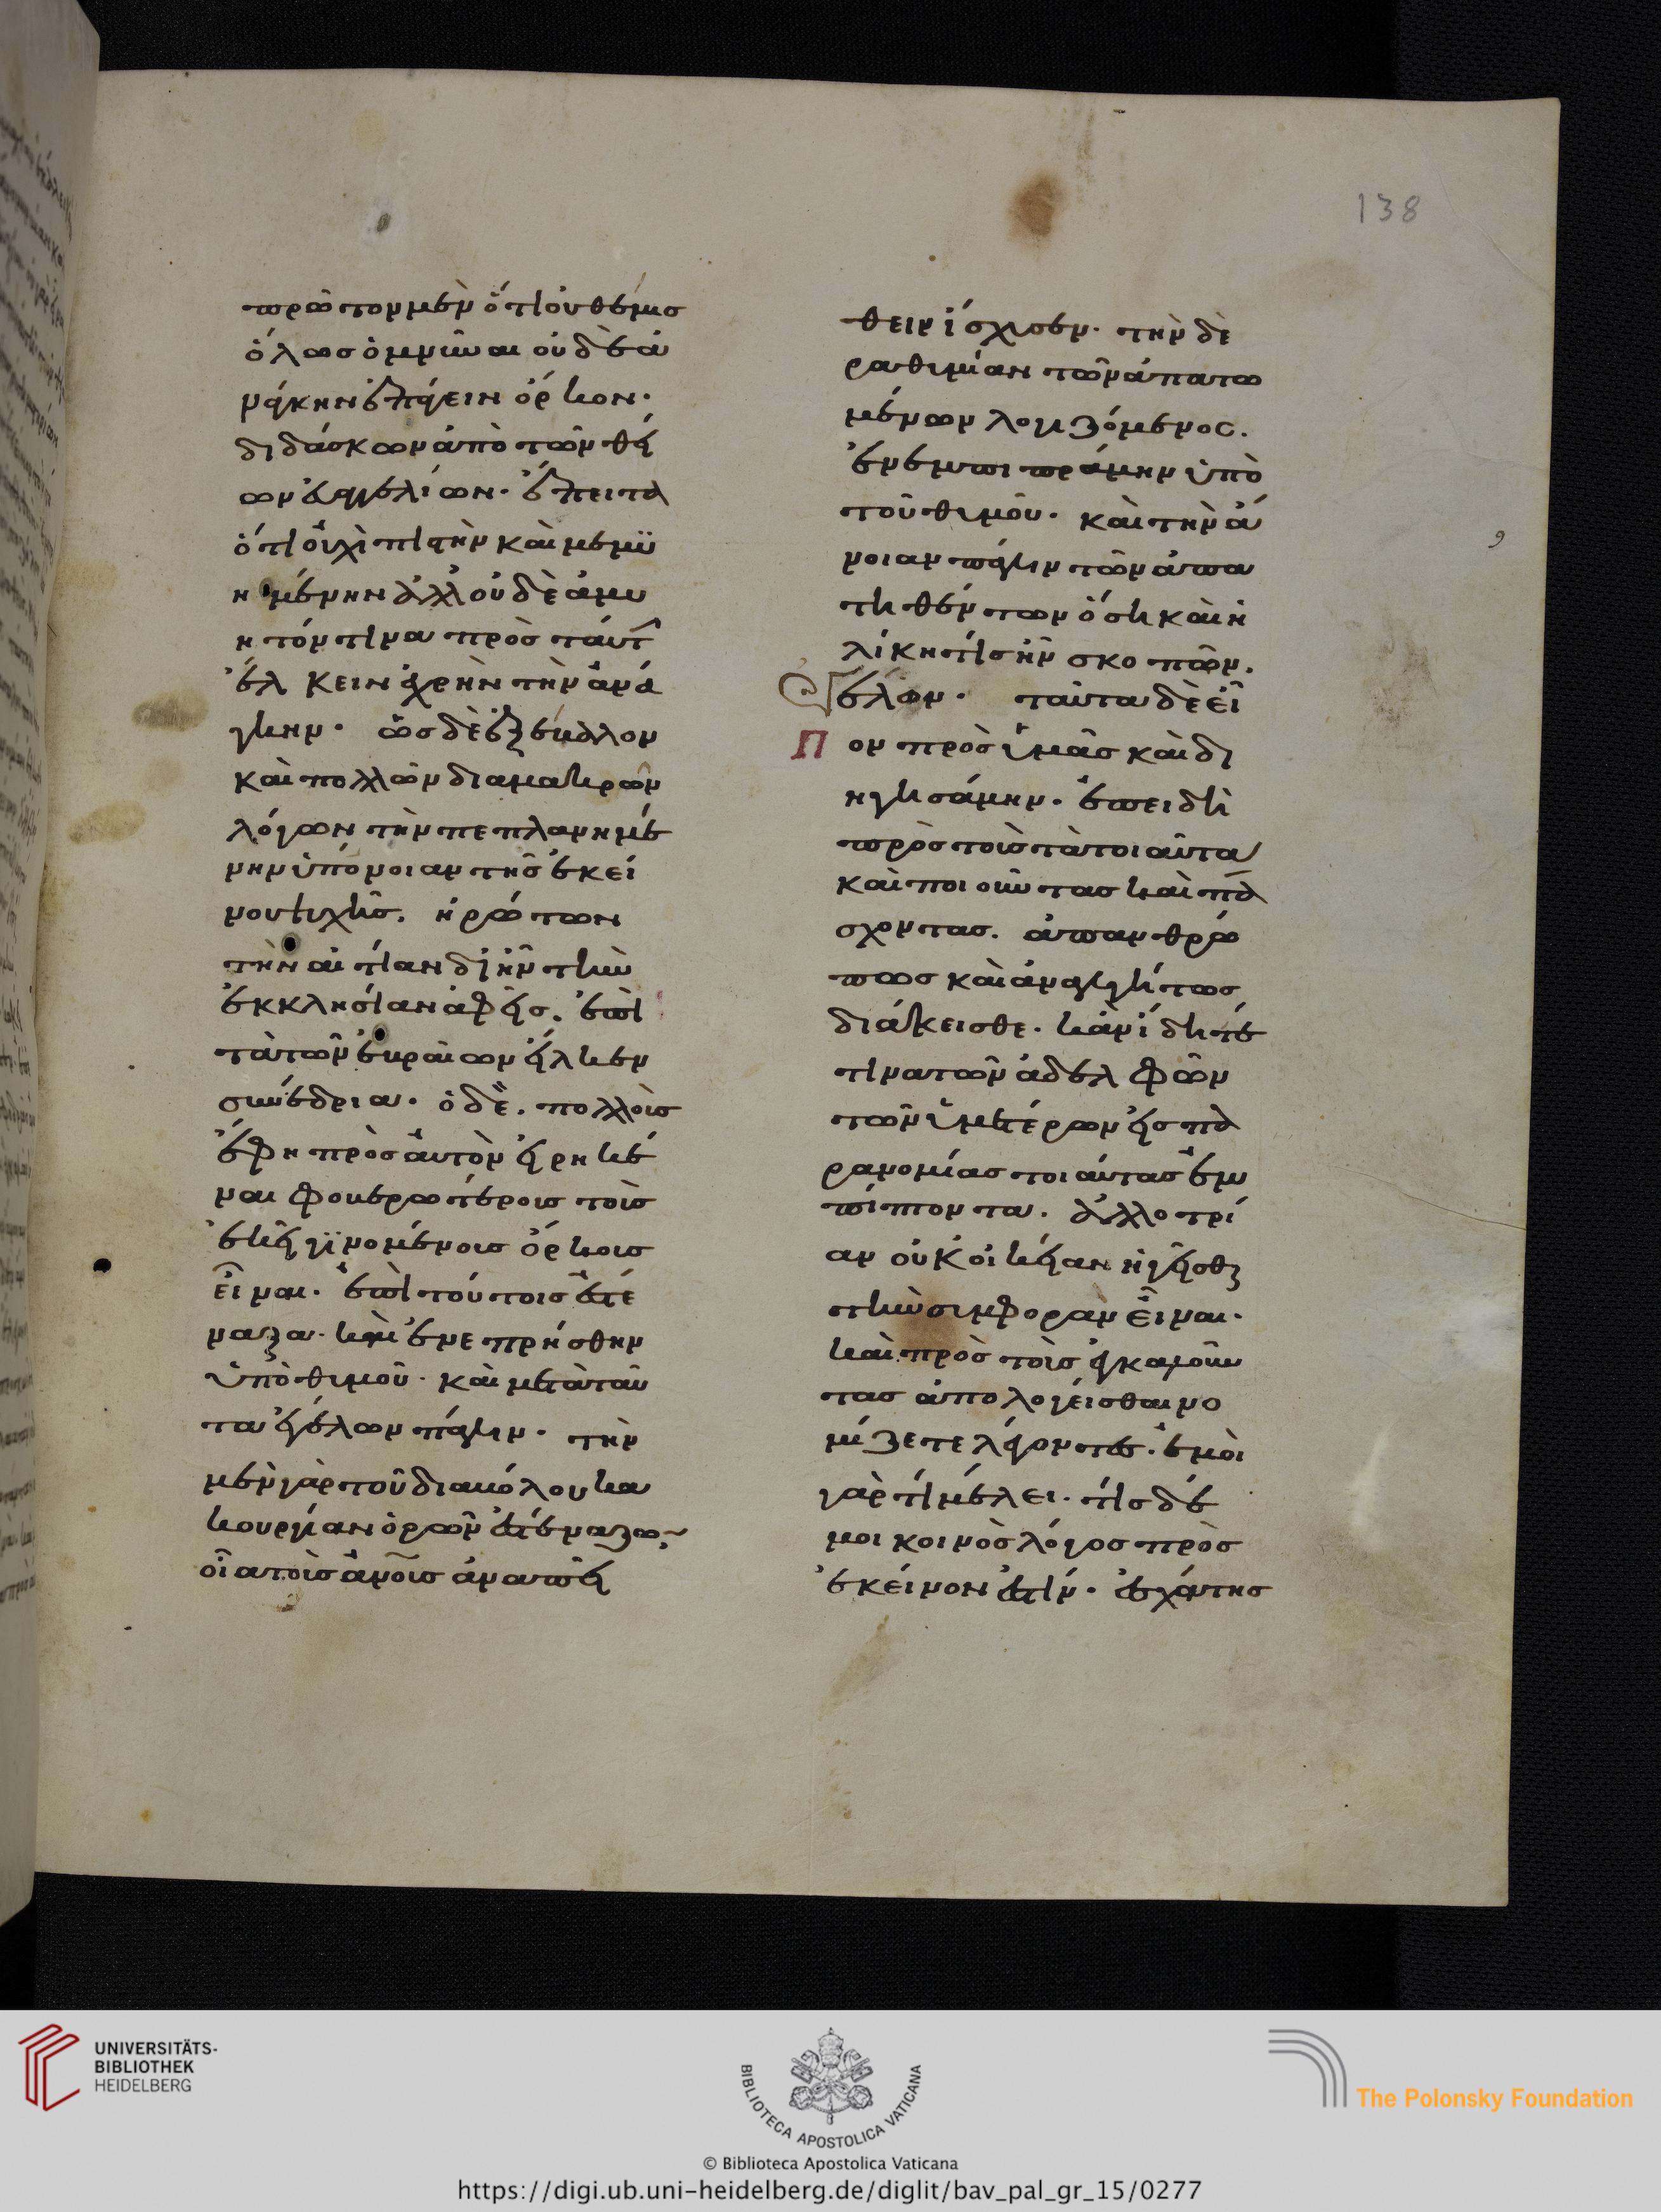 138
πρῶτον μὲν ὅτι οὐ θέμισ
ὅλωσ ὀμνύναι οὐδὲ ἀ
νάγκην ἐπάγειν ὅρκων·
διδάσκων ἀπὸ τῶν θεί
ων εὐαγγελίων· ἔπειτα
ὅτι οὐχὶ πιστὴν καὶ μεμυ
ημένην ἀλλ' οὐδὲ ἀμύ
ητόν τινα πρὸσ ταύτ
ἕλκειν ἐχρῆν τὴν ἀνά
γκην· ὡσ δὲ ἐξέβαλον
καὶ πολλῶν δια μακρῶν
λόγων τὴν πεπλανημέ
νην ὑπόνοιαν τῆσ ἐκεί
νου ψυχῆσ. ἠρώτων
τὴν αἰτίαν δι' ἣν τὴν
ἐκκλησίαν ἀφεὶσ. ἐπὶ
τὰ τῶν ἑβραίων εἷλκεν
συνέδρια. ὁ δὲ. πολλοὺσ
ἔφη πρὸσ αὐτὸν εἰρηκέ
ναι φοβερωτέρουσ τοὺσ
ἐκεῖ γινομένουσ ὅρκουσ
εἶναι. ἐπὶ τούτοισ ἐστέ
ναξα. καὶ ἐνεπρήσθην
ὑπὸ θυμοῦ. καὶ μετὰ ταῦ
τα ἐγέλων πάλιν. τὴν
μὲν γὰρ τοῦ διαβόλου κα
κουργίαν ὁρῶν ἐστέναζον
οἷα τοὺσ ἀνοῦσ ἀναπεί
θειν ἴσχυσεν. τὴν δὲ
ραθυμίαν τῶν ἀπατω
μένων λογιζόμενοσ.
ἐνεπιπράμην ὑπὸ
τοῦ θυμοῦ. καὶ τὴν ἄ
νοιαν πάλιν τῶν ἀπα
τηθέντων ὅση καὶ ἡ
λίκη τίσ ἦν σκοπῶν.
ἐγέλων. ταῦτα δὲ εἶ
Πον πρὸσ ὑμᾶσ καὶ δι
ηγησάμην. ἐπειδὴ
πρὸσ τοὺσ τὰ τοιαῦτα
καὶ ποιοῦντασ καὶ πά
σχοντασ. ἀπανθρώ
πωσ καὶ ἀναλγήτωσ
διάκεισθε. κἂν ἴδητέ
τινα τῶν ἀδελφῶν
τῶν ὑμετέρων εἰσ πα
ρανομίασ τοιαύτασ ἐμ
πίπτοντα. ἀλλοτρί
αν οὐκ οἰκείαν ἡγεῖσθε
τὴν συμφορὰν εἶναι.
καὶ πρὸσ τοὺσ ἐγκαλοῦν
τασ ἀπολογεῖσθαι νο
μίζετε λέγοντεσ. ἐμοὶ
γὰρ τί μέλει. τίσ δέ
μοι κοινὸσ λόγοσ πρὸσ
ἐκεῖνον ἐστίν. ἐσχάτησ
UNIVERSITÄTS-
BIBLIOTHEK
HEIDELBERG
BIBLIOTECA APOSTOLICA VATICANA
The Polonsky Foundation
© Biblioteca Apostolica Vaticana
https://digi.ub.uni-heidelberg.de/diglit/bav_pal_gr_15/0277